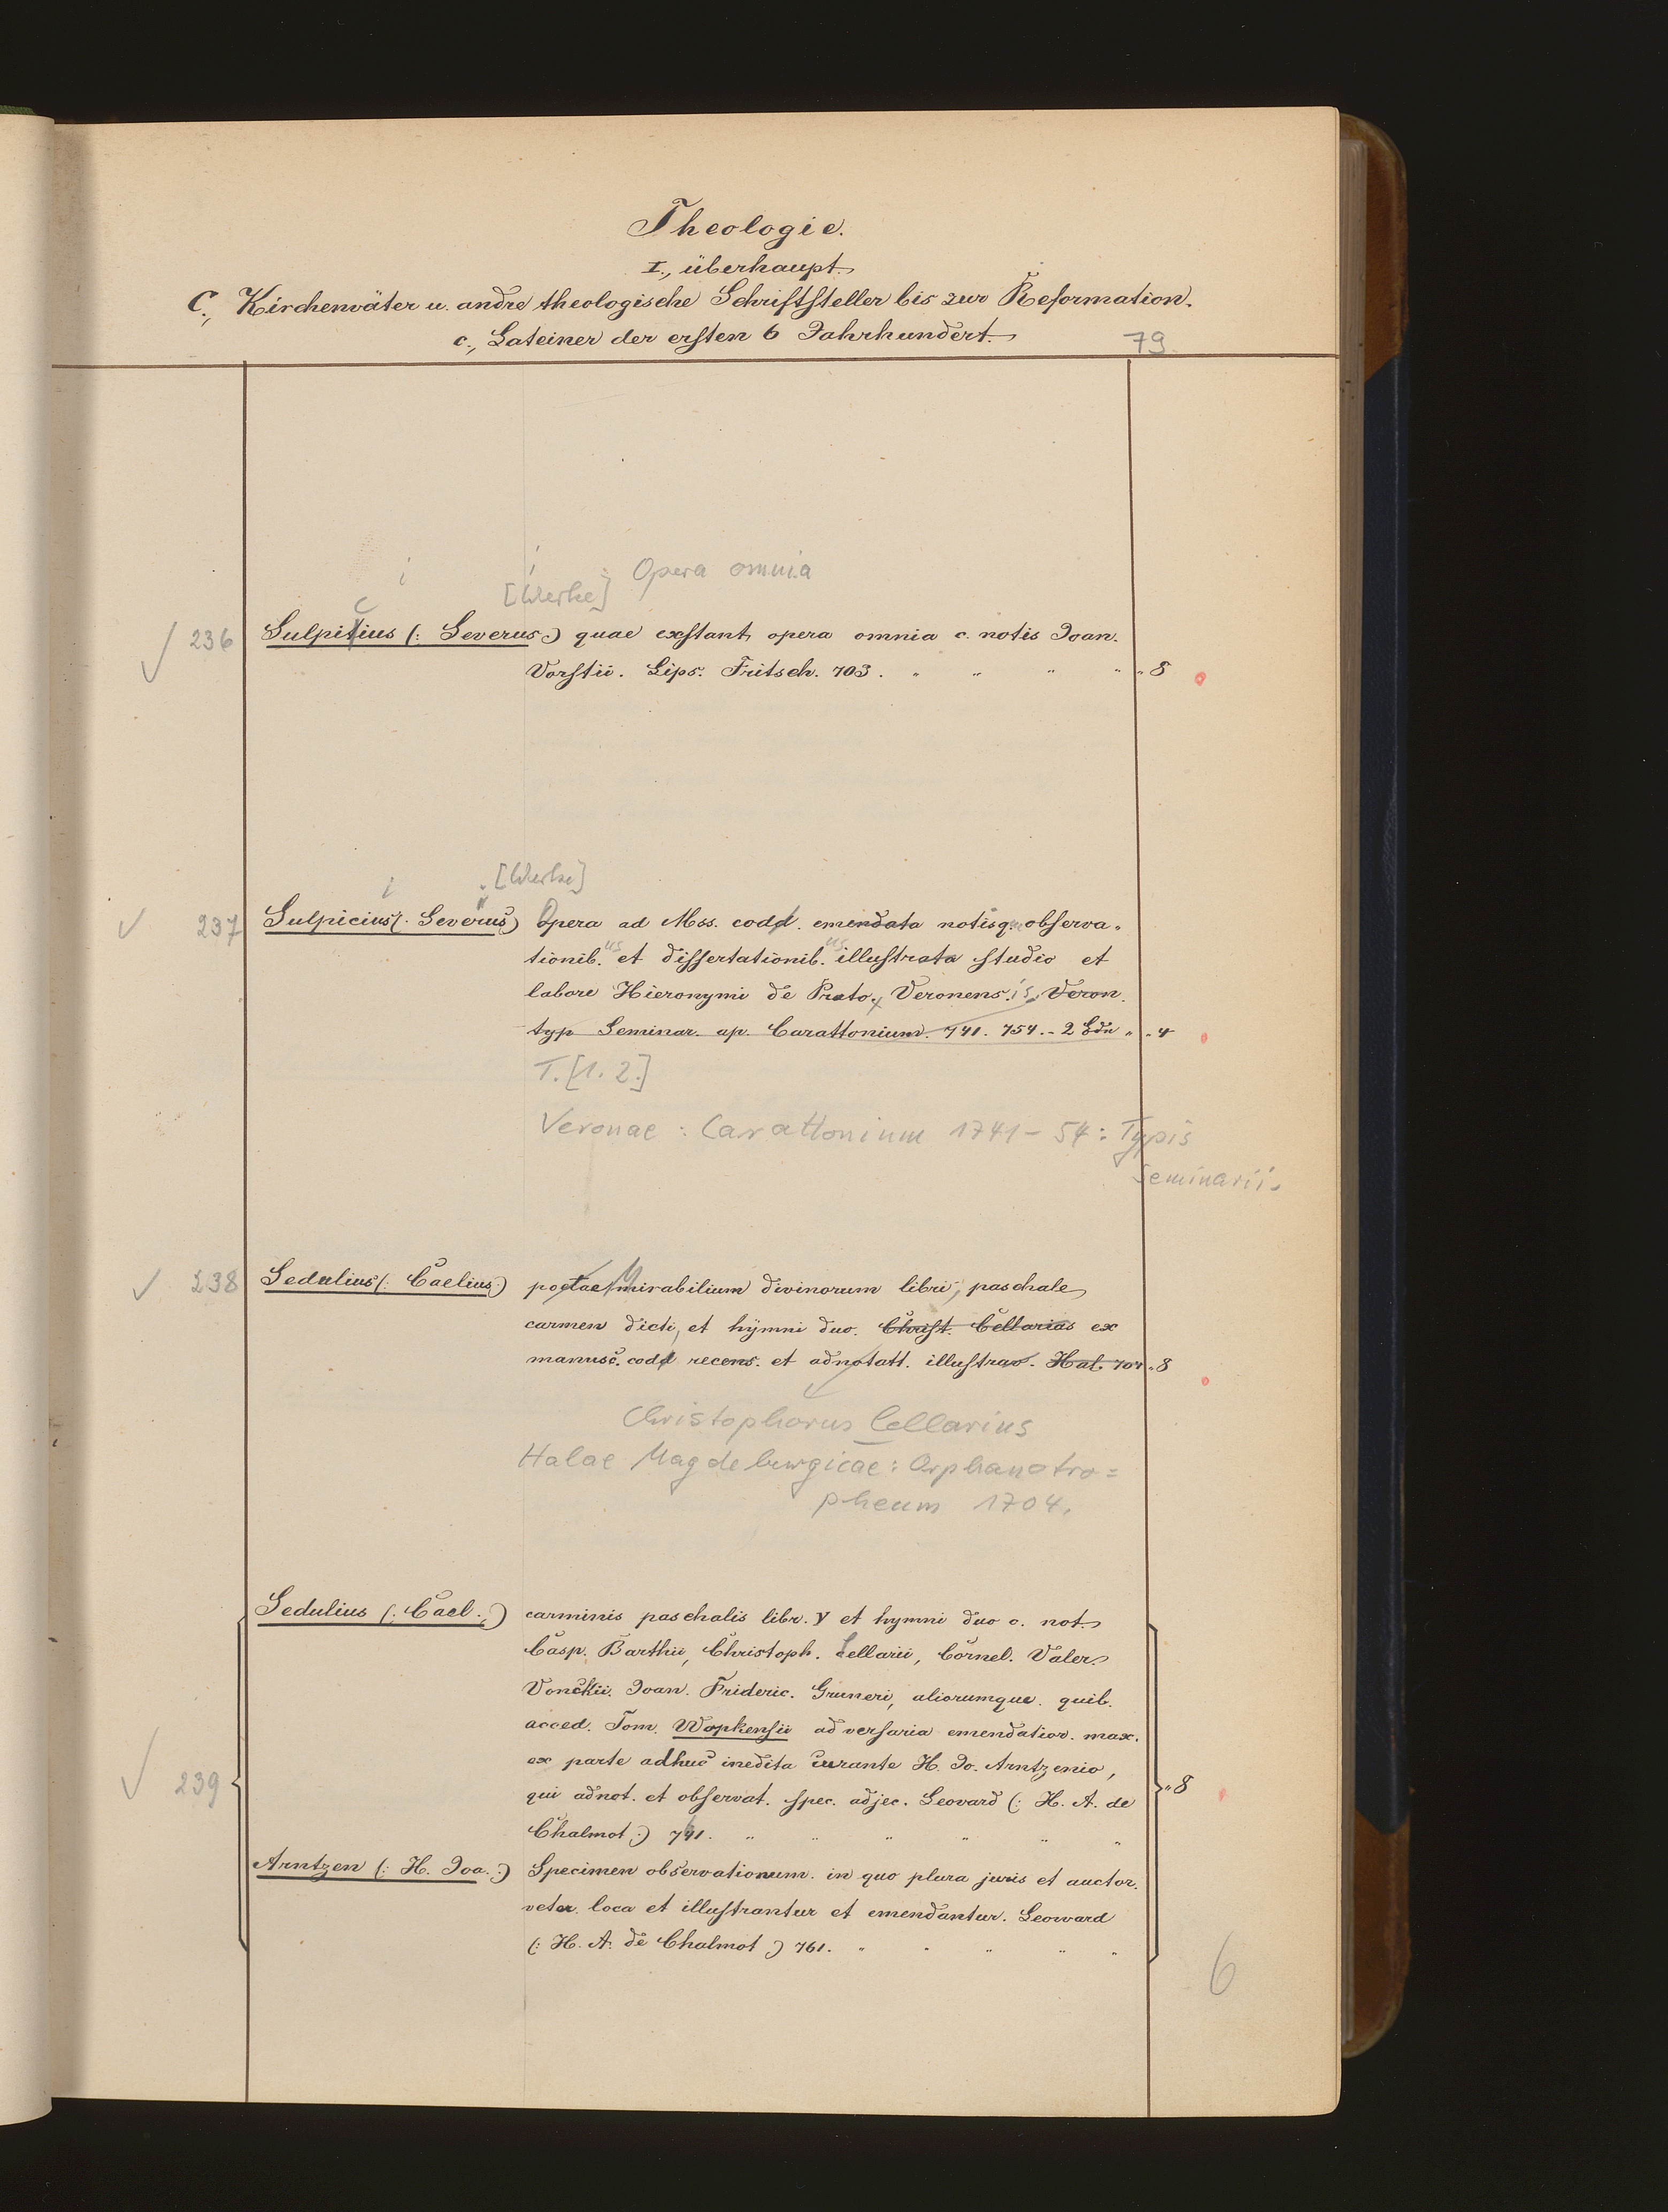 Theologie.
I., überhaupt.
C., Kirchenväter u. andre theologische Schriftsteller bis zur Reformation.
c., Lateiner der ersten 6 Jahrhundert.
79.
i i Opera omnia
c [Werke]
√ 236 Sulpitius (: Severus) quae exstant opera omnia c. notis Joan.
Vorstii. Lips. Fritsch. 703. " " " " " 8
i [Werke]
√ 237 Sulpicius (: Severus) Opera ad Mss. codd. emendata notisq. observa-
tionib.us et dissertationib.us illustrata studio et
labore Hieronymi de Prato, Veronens.is, Veron.
typ Seminar. ap. Carattonium. 741. 754. - 2 Bde " " 4
T. [1. 2.]
Veronae : Carattonium 1741-54 : Typis
Seminarii.
√ 238 Sedulius (: Caelius) poetae mirabilium divinorum libri, paschale
carmen dicti, et hymni duo. Christ. Cellarius ex
manusc. codd recens. et adnotatt. illustrav. Hal. 704 " 8
Christophorus Cellarius
Halae Magdeburgicae : Orphanotro=
pheum 1704.
Sedulius (: Cael. :) carminis paschalis libr. V et hymni duo c. not.
Casp. Barthii, Christoph. Cellarii, Cornel. Valer.
Vonckii. Joan. Frideric. Gruneri, aliorumque. quib.
acced. Tom. Wopkensii adversaria emendatior. max.
ex parte adhuc inedita curante H. Jo. Arntzenio,
√ 239 " 8
qui adnot. et observat. spec. adjec. Leovard (: H. A. de
Chalmot :) 761. " " " " " "
Arntzen (: H. Joa. :) Specimen observationum. in quo plura juris et auctor.
veter. loca et illustrantur et emendantur. Leovard
(: H. A. de Chalmot :) 761. " " " " "
6